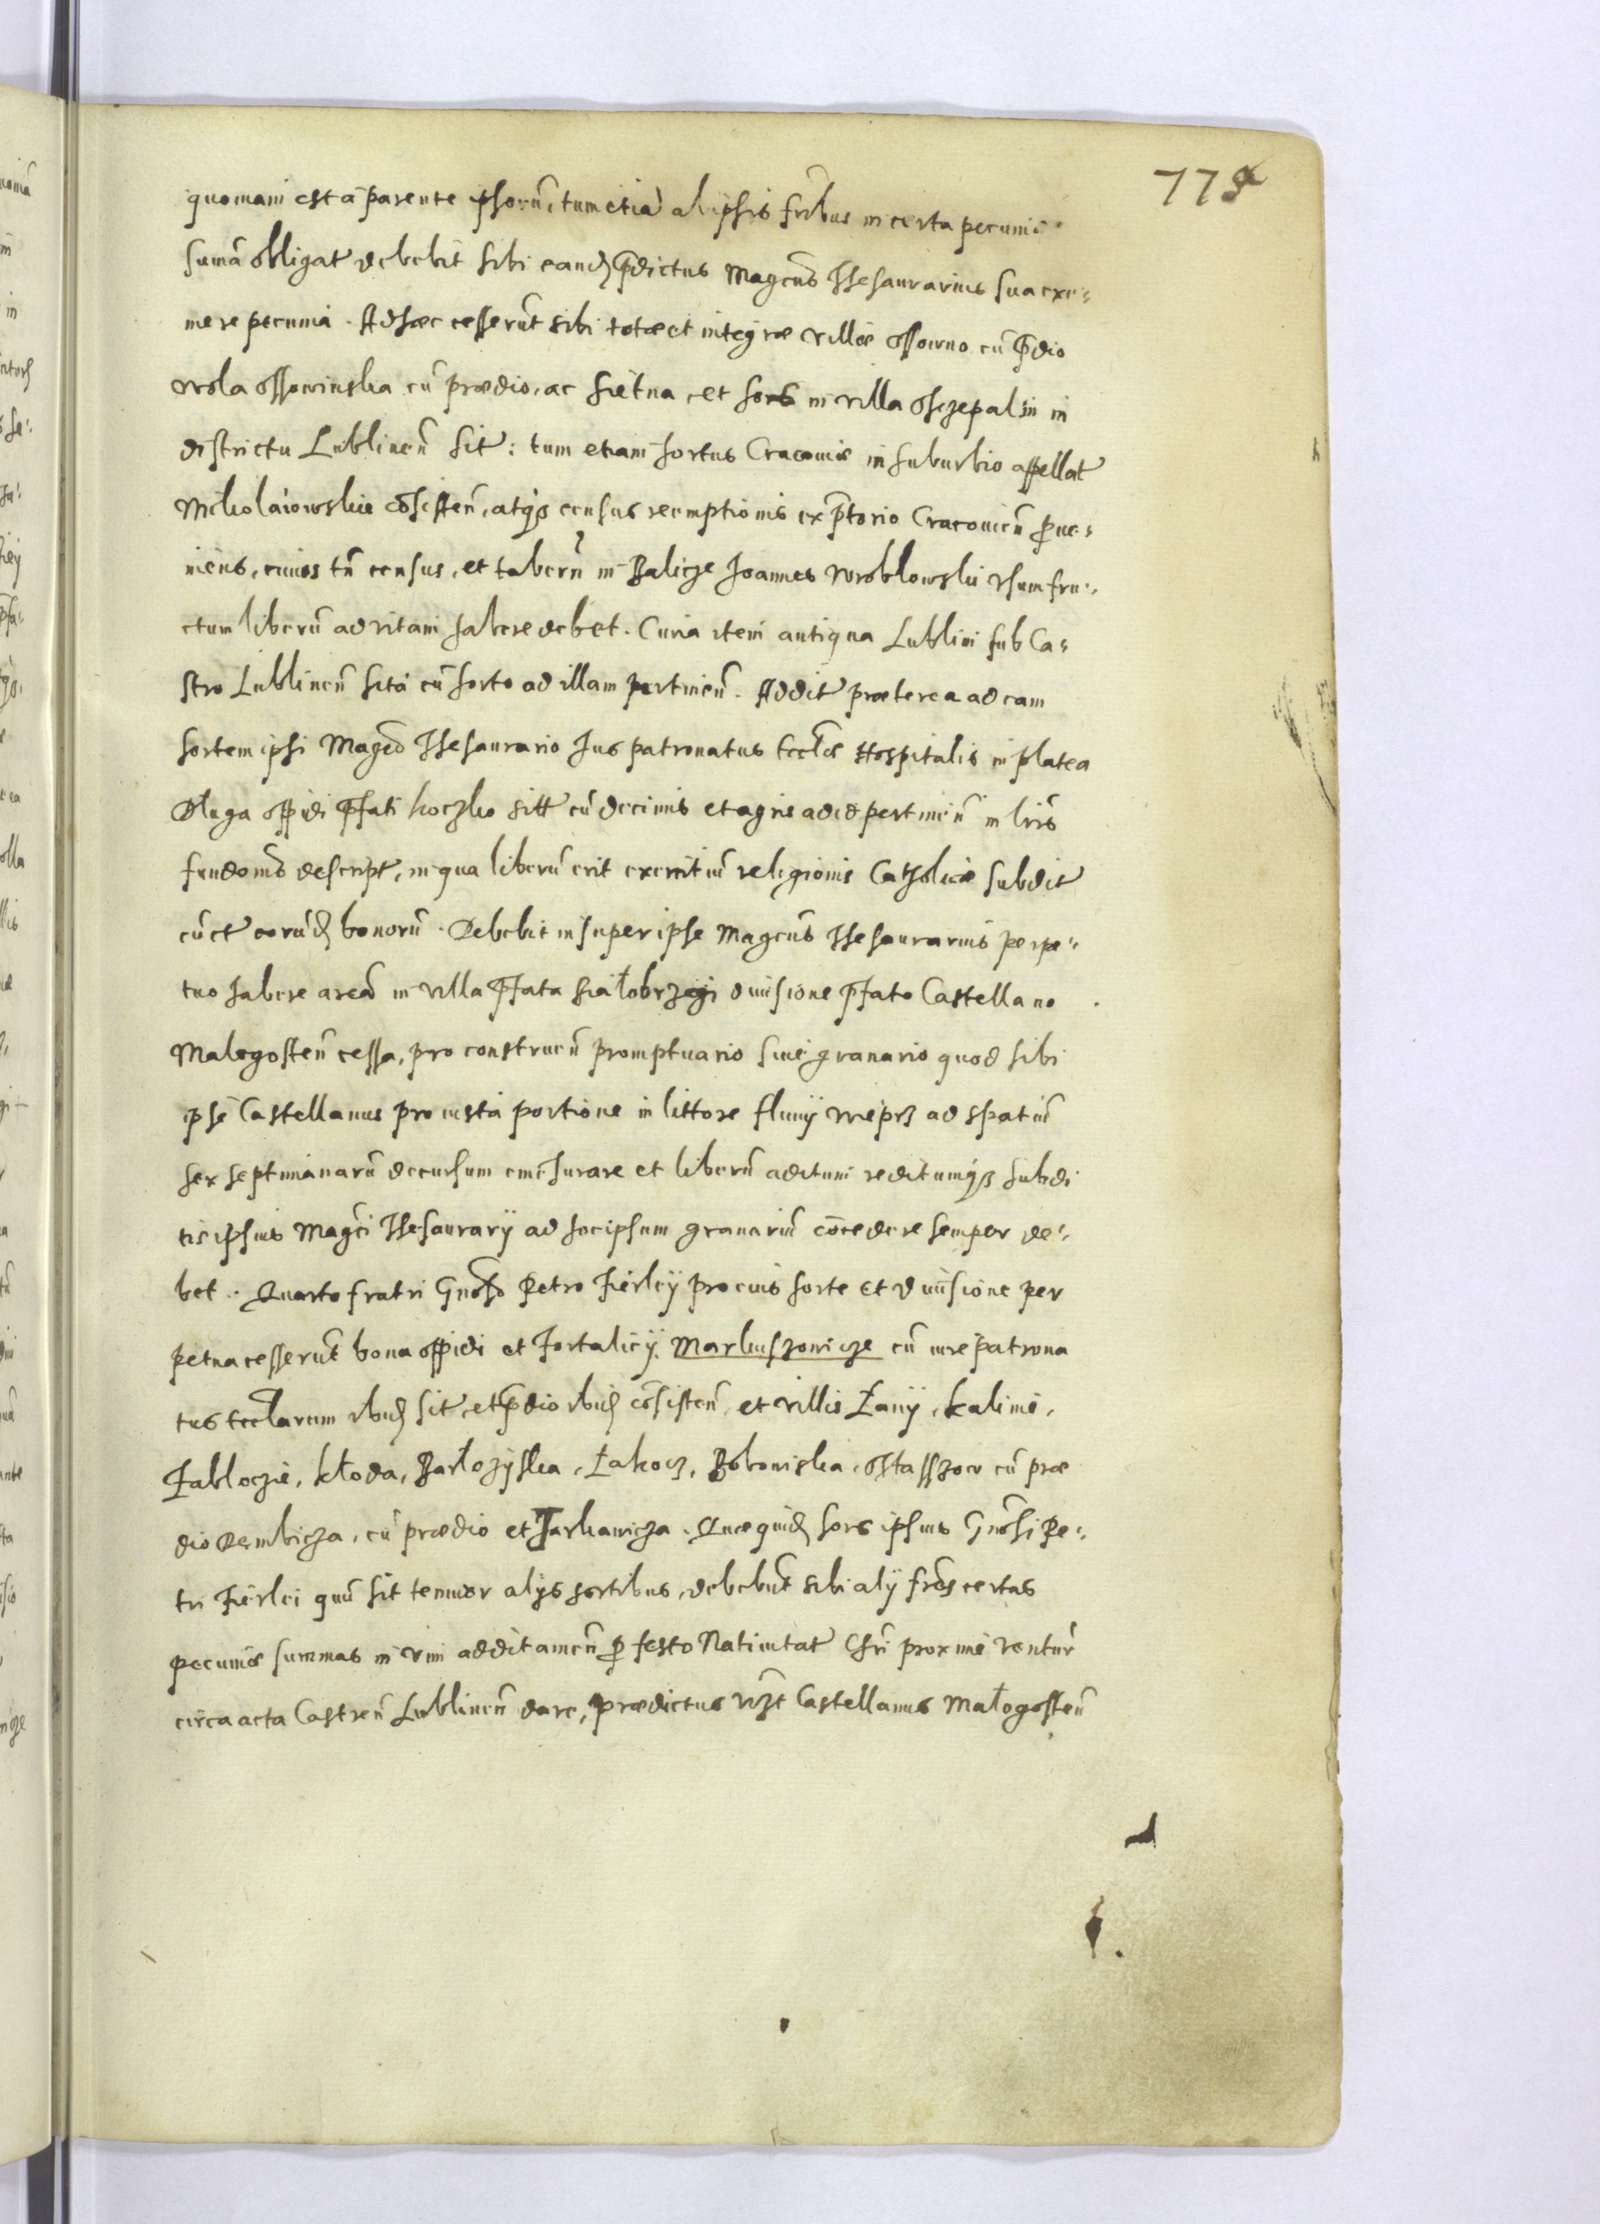 779
quoniam est a parente ipsorū, tum etiā ab ipsis frībus in certa pecuniæ
sumā obligat debebit sibi eandē pdictus Magcūs Thesaurarius sua exi-
mere pecunia. Ad hæc cesserūt sibi totæ et integræ villæ Ossowno cū pdio
Wola Ossowinska cū prædio, ac Sietna, et sors in villa in
districtu Lublinen̄ sit: tum etiam hortus Cracoviæ in suburbio appellat
Mikolaiowskie cōsisten̄, atq census reemptionis ex ptorio Cracovien̄ pve-
niens, cuius tn̄ census, et tabern̄ in Balicze Joannes Wroblowski vsumfru-
ctum liberū ad vitam habere debet. Curia item antiqua Lublini sub Ca-
stro Lublinen̄ sita cū horto ad illam pertinen̄. Addit præterea ad eam
sortem ipsi Magco Thesaurario Jus patronatus Eccliæ Hospitalis in platea
Dluga oppidi pfati Koczko sitt cū decimis et agris ad id pertinen̄ in lris
fundoīs descript, in qua liberū erit exercitiū religionis Catholicæ subdit
cūct eorūd bonorū. Debebit insuper ipse Magcūs Thesaurarius perpe-
tuo habere areā in villa pfata Białobrzegi divisione pfato Castellano
Malogosten̄ cessa, pro construen̄ promptuario sive granario quod sibi
ipse Castellanus pro iusta portione in littore fluvij Wieprz ad spatiū
sex septimanarū decursum emēsurare et liberū aditum reditumq subdi
tis ipsius Magci Thesaurarij ad hoc ipsum granariū cōcedere semper de-
bet. Quarto fratri Gnoso Petro Fierley pro eius sorte et divisione per
petua cesserūt bona oppidi et Fortalicij Markuszowicze cū iure patrona
tus ecclarum ibid sit, et pdio ibid cōsisten̄, et villis Łany, Kalinie,
Jabloczie, Kłoda, Barłozyska, Łakocz, Bobowiska, Ostasszow cū præ
dio Dembicza, cū prædio et Jarkawicza. Quæquid sors ipsius Gnosi Pe-
tri Fierlei quū sit tenuior alijs sortibus, debebūt sibi alij frēs certas
pecuniæ summas in vim additamen̄ p festo Nativitat Chri proxime ventur
circa acta Castren̄ Lublinen̄ dare, prædictus vzt Castellanus Małogosten̄